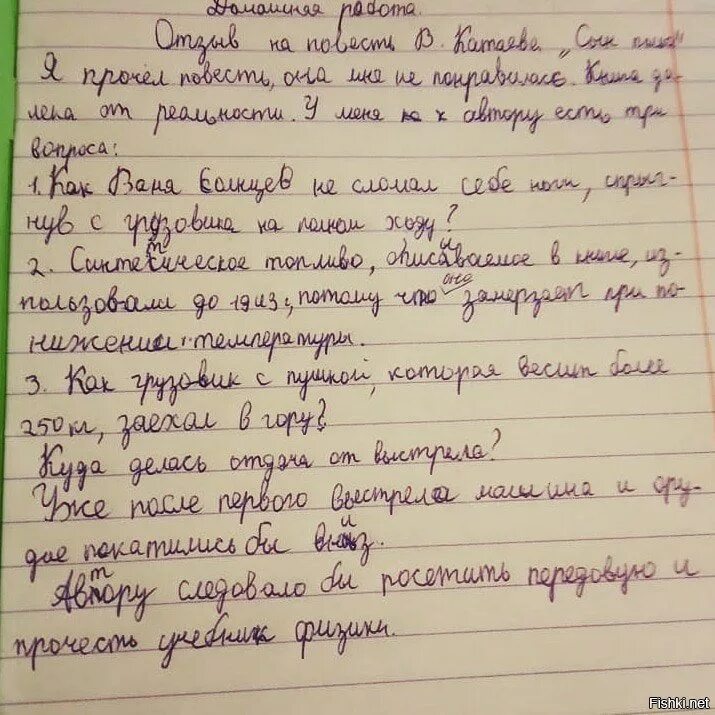 Домашняя работа.
Отзыв на повесть В. Катаева „Сын полка"
Я прочёл повесть, она мне не понравилась. Книга да-
лека от реальности. У меня к автору есть три
вопроса:
1. Как Ваня Солнцев не сломал себе ноги, спрыг-
нув с грузовика на полном ходу?
2. Синтетическое топливо, описываемое в книге, ис-
пользовали до 1943 г, потому что она замерзает при по-
нижении температуры.
3. Как грузовик с пушкой, которая весит более
250 кг, заехал в гору?
Куда делась отдача от выстрела?
Уже после первого выстрела машина и ору-
дие покатились бы вниз.
Автору следовало бы посетить передовую и
прочесть учебник физики.
Fishki.net